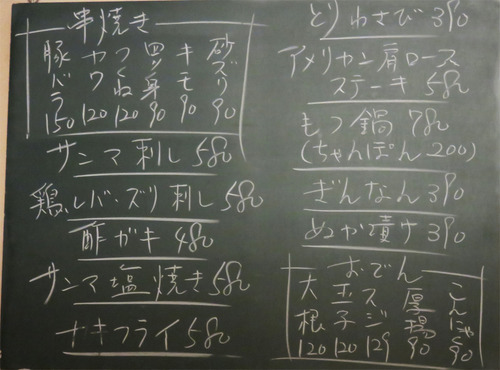 串焼き
豚バラ 150
カワ 120
つくね 120
四ツ身 90
キモ 90
砂ズリ 90
サンマ刺し 580
鶏レバ・ズリ刺し 580
酢ガキ 480
サンマ塩焼き 580
カキフライ 580
とりわさび 390
アメリカン肩ロース
ステーキ 580
もつ鍋 780
(ちゃんぽん 200)
ぎんなん 390
ぬか漬け 390
おでん
大根 120
玉子 120
スジ 129
厚揚 90
こんにゃく 90